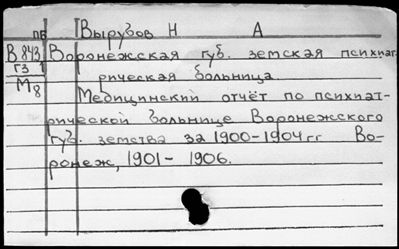 ПБ Вырубов Н А
В 843 Воронежская губ. земская психиат-
Г3 1 рическая больница
М8 Медицинский отчёт по психиат-
рической больнице Воронежского
губ. земства за 1900-1904 гг Во-
ронеж, 1901-1906.